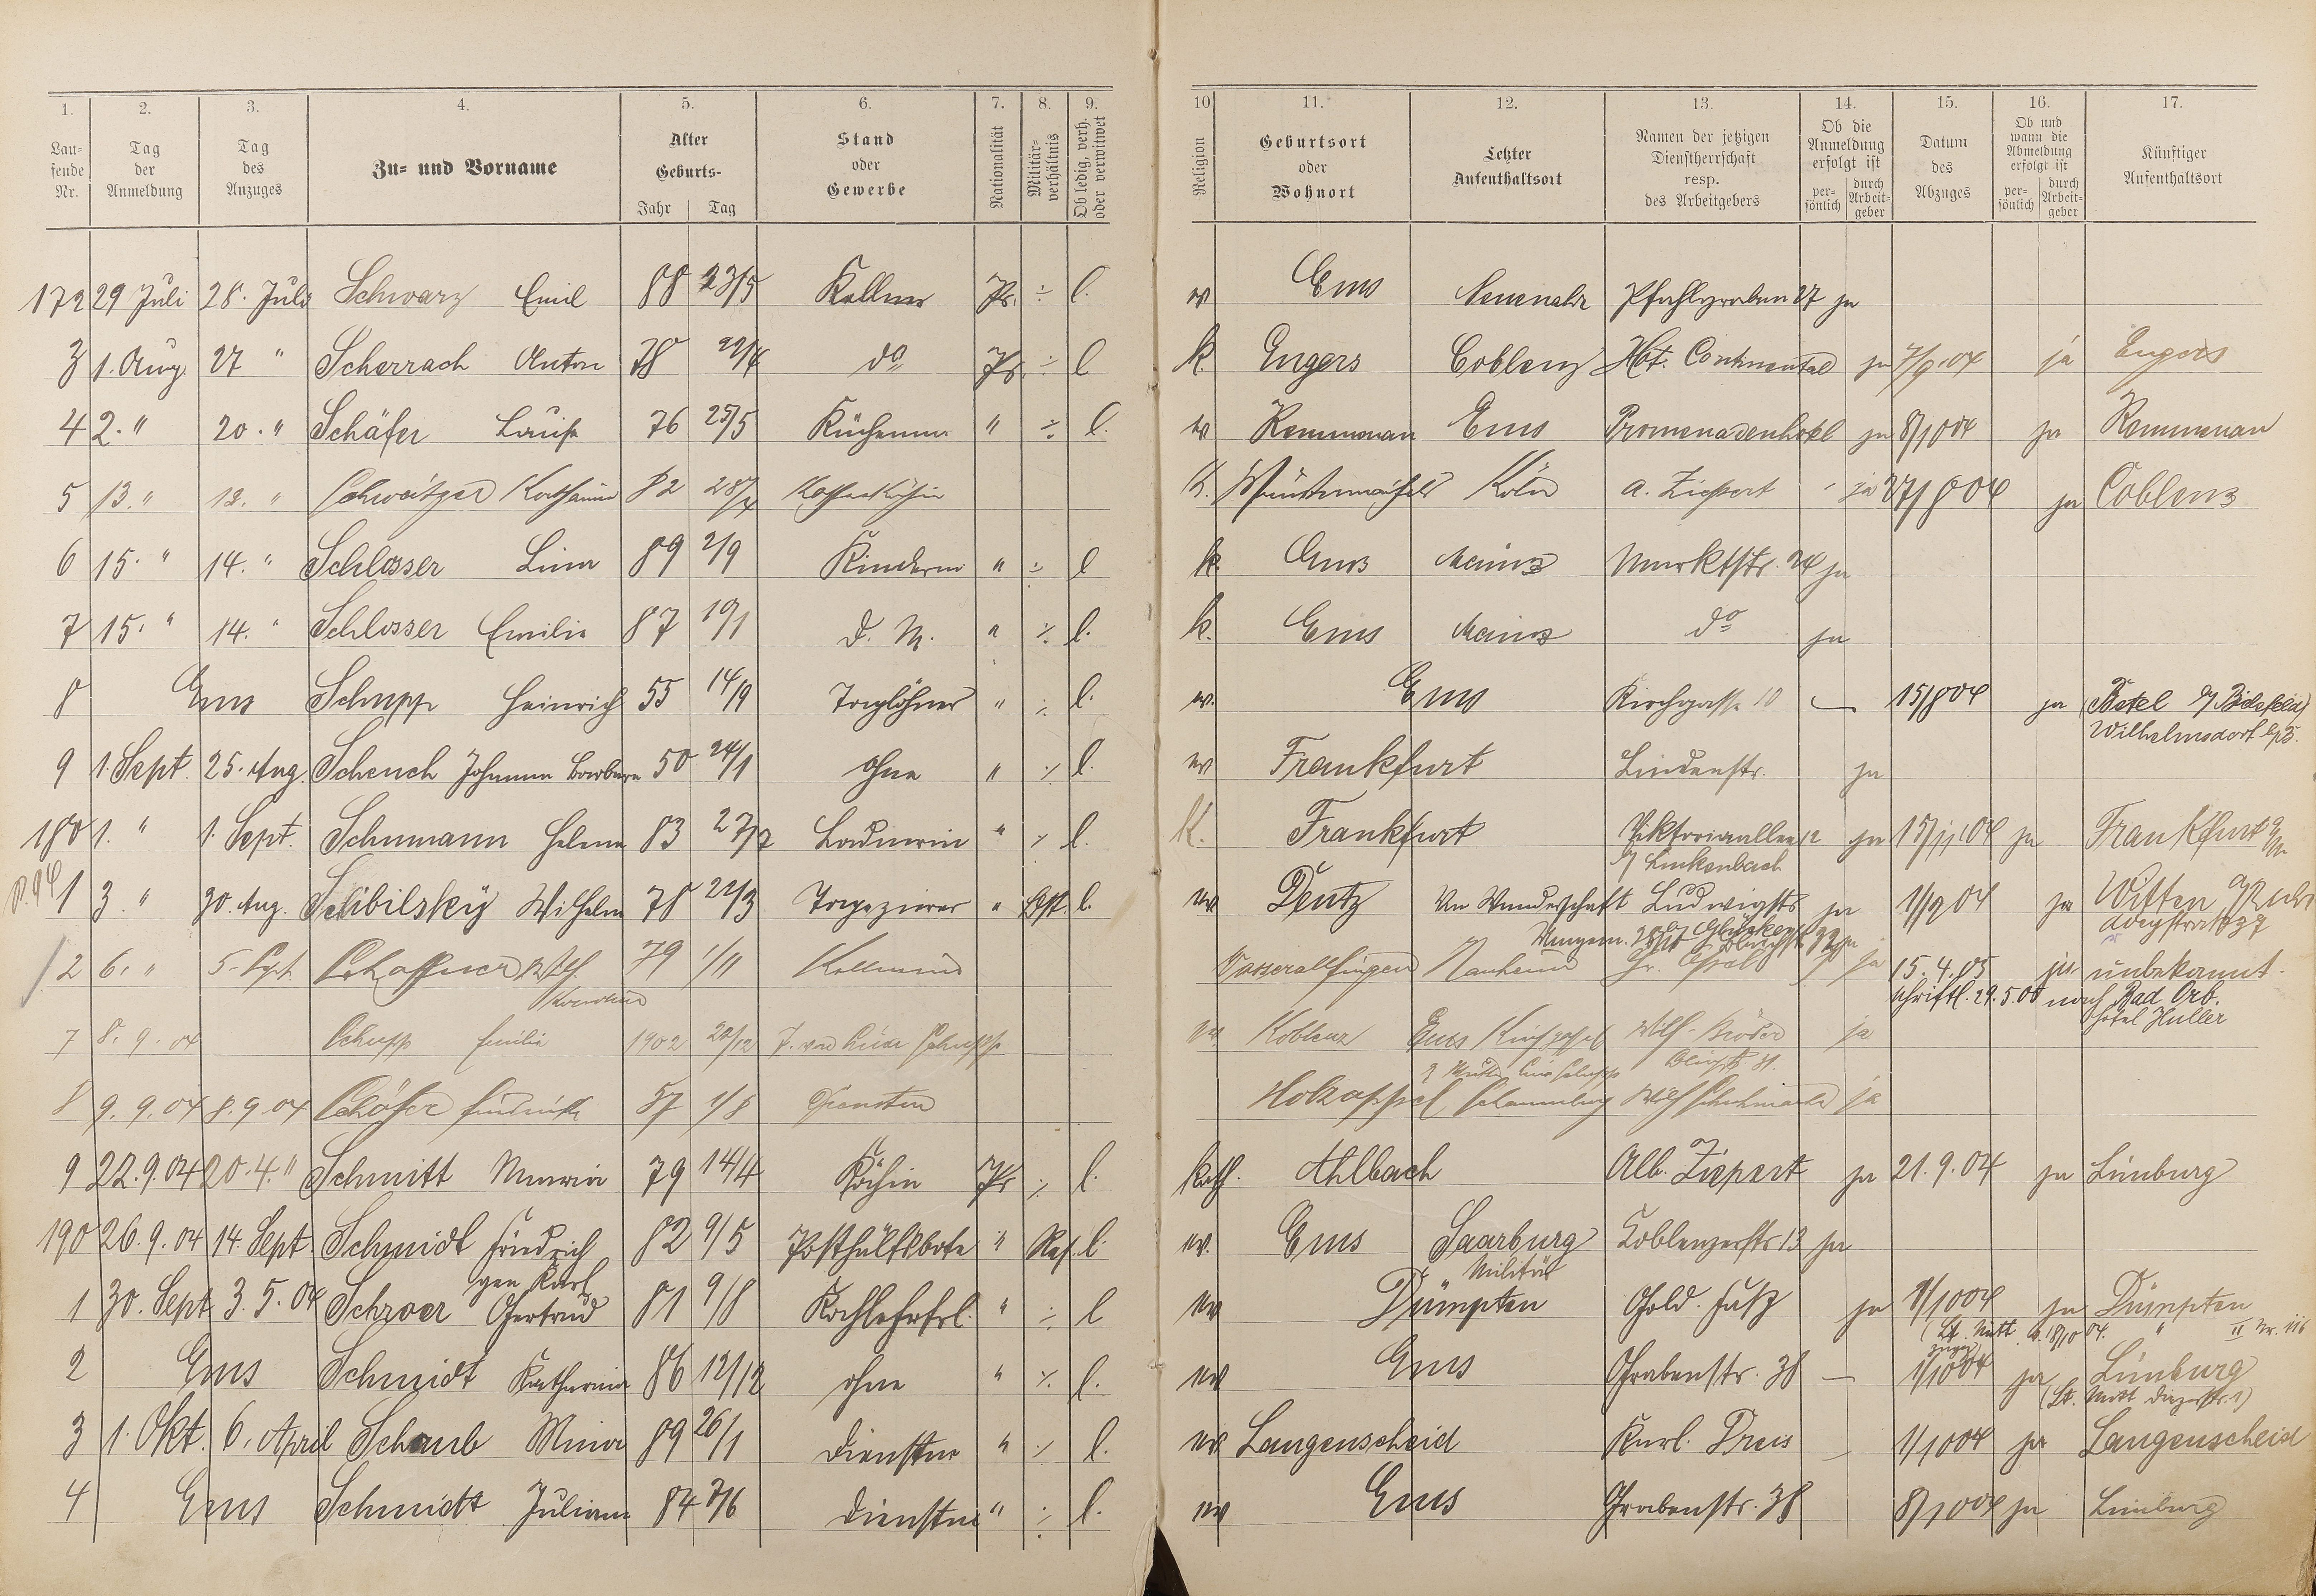 1. 2. 3. 4. 5. 6. 7. 8. 9. 10 11. 12. 13. 14. 15. 16. 17.
Laufende Nr. Tag der Anmeldung Tag des Anzuges Zu- und Vorname Alter Geburts- Jahr Tag Stand oder Gewerbe Nationalität Militärverhältnis Ob ledig, verh. oder verwitwet Religion Geburtsort oder Wohnort Letzter Aufenthaltsort Namen der jetzigen Dienstherrschaft resp. des Arbeitgebers Ob die Anmeldung erfolgt ist persönlich durch Arbeitgeber Datum des Abzuges Ob und wann die Abmeldung erfolgt ist persönlich durch Arbeitgeber Künftiger Aufenthaltsort
172 29 Juli 28. Juli Schwarz Emil 88 23/5 Kellner Pr. ÷ l. ev Ems Neuenahr Pfahlgraben 27 ja
3 1. Aug. 27 " Scherrach Anton 78 22/4 do Pr. ÷ l k. Engers Coblenz Hot. Continental ja 7/9.04 ja Engers
4 2. " 20. " Schäfer Louise 76 25/5 Küchenm " ÷ l. ev Kemmenau Ems Promenadenhotel ja 8/10 04 ja Kemmenau
5 13. " 12. " Schweitzer Katharina 82 Kaffeeköchin K. Münstermaifeld Köln A. Ziepert ja 27/8 04 ja Coblenz
6 15. " 14. " Schlosser Lina 89 2/9 Kinderm " ÷ l k. Ems Mainz Marktstr. 24 ja
7 15. " 14. " Schlosser Emilie 87 19/1 D. M. " ÷ l. k. Ems Mainz do ja
8 Ems Schupp Heinrich 55 14/9 Taglöhner " ÷ l. ev. Ems Kirchgasse 10 — 15/8 04 ja
Wilhelmsdorf
9 1. Sept. 25. Aug. Schenck Johanna Barbara 50 24/1 ohne " ÷ l. ev Frankfurt Lindenstr. ja
180 1. " 1. Sept. Schumann Helene 83 27/7 Ladnerin " ÷ l. K. Frankfurt Viktoriaallee 12 ja 15/11.04 ja Frankfurt a/M
b/ Linkenbach
1 3. " 30. Aug. Wilhelm 78 22/3 Tapezierer " l. ev Deutz Ludwigstr ja 1/9 04 ja Witten a/Ruhr
2 6. " 5. Sept. Schaffner Wilh. 79 1/11 Kellner Wasseralfingen Nauheim ja 15.4.05 ja unbekannt.
schriftl. 29.5.05 nach Bad Orb.
Hotel Huller
7 8. 9. 04 Schupp Emilie 1902 20/12 ev. Koblenz Ems Kirchgasse Wilh. ja
8 9. 9. 04 8. 9. 04 Schäfer 57 1/8 Holzappel Schaumburg Wilh. ja
9 22. 9. 04 20. 4. " Schmitt Maria 79 14/4 Köchin Pr ÷ l. kath. Ahlbach Alb. Ziepert ja 21. 9. 04 ja Limburg
190 26. 9. 04 14. Sept. Schmidt Friedrich 82 9/5 Posthülfsbote " Res. l. ev. Ems Saarburg Koblenzerstr. 13 ja
gen Karl Militär
1 30. Sept 3. 5. 04 Schroer Gertrud 81 9/8 Kochlehrfrl. " ÷ l ev Dümpten Gold. Faß ja 8/10 04 ja Dümpten
2 Ems Schmidt Katharina 86 12/12 ohne " ÷ l. ev Ems Grabenstr. 38 — 1/10 04 ja Limburg
3 1. Okt. 6. April Schaub Mina 89 26/1 Dienstm " ÷ l. ev Langenscheid Karl. Preis — 1/10 04 ja Langenscheid
4 Ems Schmidt Juliane 84 7/6 Dienstm " ÷ l. ev Ems Grabenstr. 38 8/10 04 ja Limburg